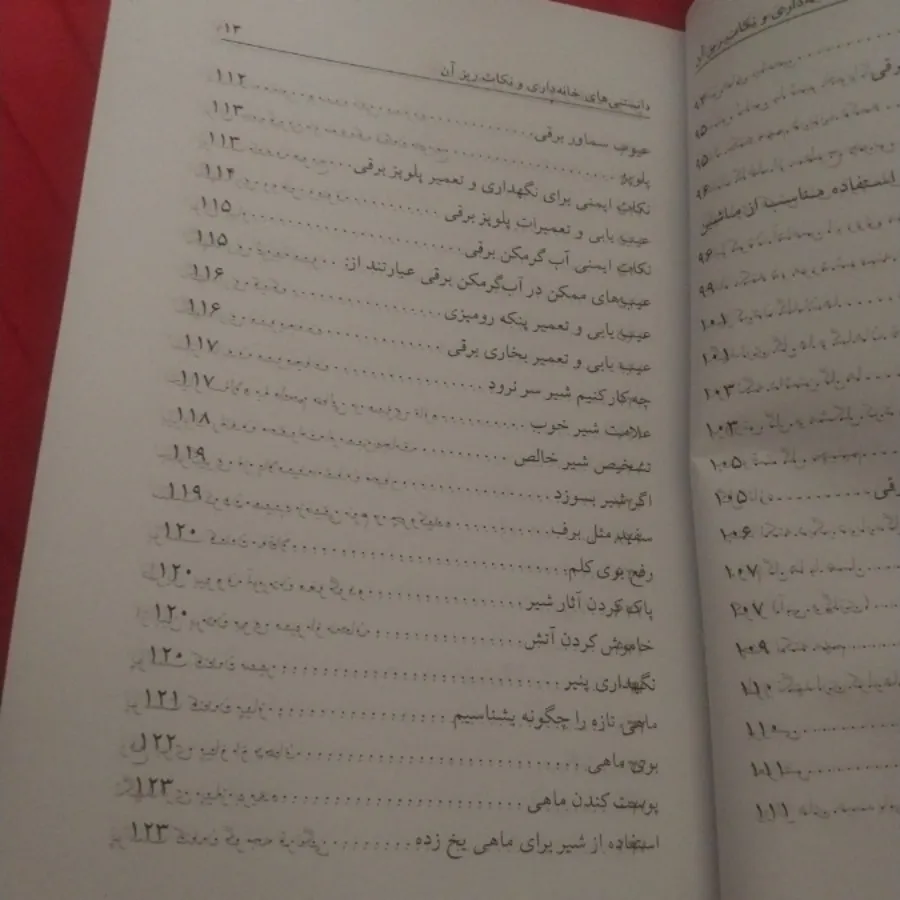 دانستنی‌های خانه‌داری و نکات ریز آن ۱۳
عیوب سماور برقی ۱۱۲
پلوپز ۱۱۳
نکات ایمنی برای نگهداری و تعمیر پلوپز برقی ۱۱۳
عیب یابی و تعمیرات پلوپز برقی ۱۱۴
نکات ایمنی آب گرمکن برقی ۱۱۵
عیب‌های ممکن در آب‌گرمکن برقی عبارتند از: ۱۱۵
عیب یابی و تعمیر پنکه رومیزی ۱۱۶
عیب یابی و تعمیر بخاری برقی ۱۱۶
چه کار کنیم شیر سر نرود ۱۱۷
علامت شیر خوب ۱۱۷
تشخیص شیر خالص ۱۱۸
اگر شیر بسوزد ۱۱۹
سفید مثل برف ۱۱۹
رفع بوی کلم ۱۲۰
پاک کردن آثار شیر ۱۲۰
خاموش کردن آتش ۱۲۰
نگهداری پنیر ۱۲۰
ماهی تازه را چگونه بشناسیم ۱۲۱
بوی ماهی ۱۲۲
پوست کندن ماهی ۱۲۳
استفاده از شیر برای ماهی یخ زده ۱۲۳
داری و نکات ریز آن
برقی
۹۵
۹۵
۹۶
استفاده مناسب از ماشین
۹۶
۹۹
۱۰۱
۱۰۱
۱۰۳
۱۰۳
۱۰۵
رقی ۱۰۵
۱۰۶
۱۰۷
۱۰۷
۱۰۹
۱۱۰
۱۱۰
۱۱۱
۱۱۱